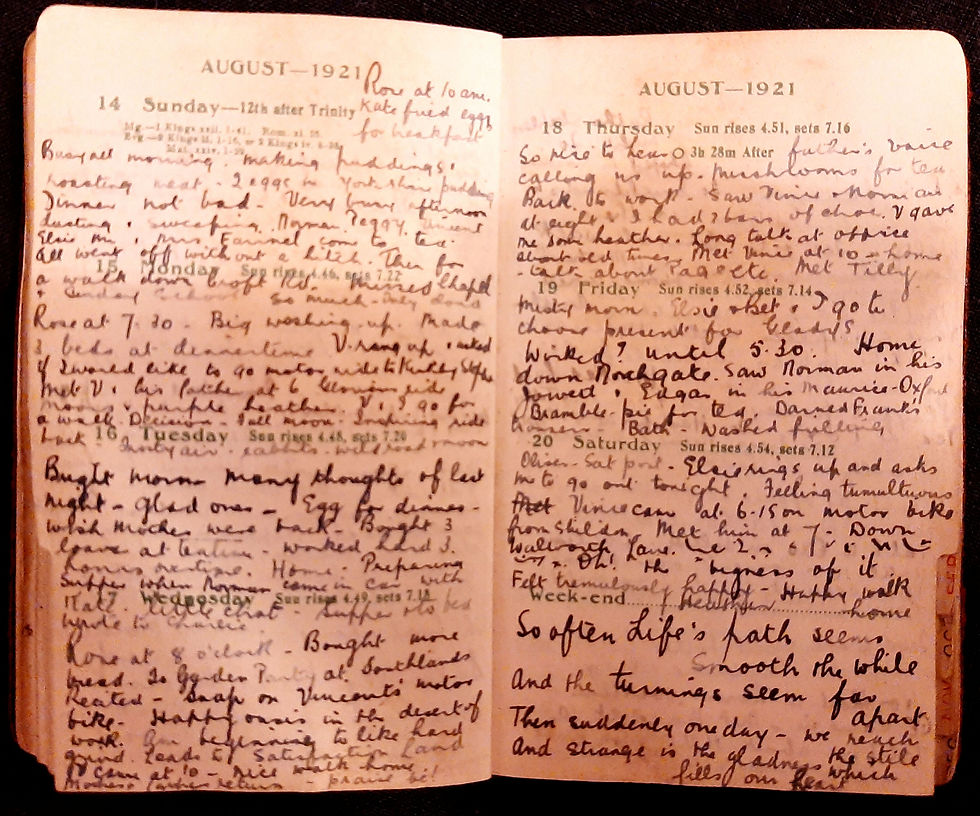 AUGUST—1921
Rose at 10 am.
14 Sunday—12th after Trinity Kate fried eggs
for breakfast
Busy all morning. making puddings.
roasting meat. 2 eggs in Yorkshire pudding
Dinner not bad. Very busy afternoon
dusting, sweeping. Norman. Peggy. Vincent
Elsie come to tea.
all went off without a hitch. Then for
a walk down Croft Rd. Missed Chapel
15 Monday Sun rises 4.46, sets 7.22
& Sunday School so much
Rose at 7.30. Big washing-up. Made
3 beds at dinnertime. V. rang up & asked
if I would like to go motor ride to
Met V & his father at 6 Glorious ride
Moors & purple heather. V & I go for
a walk Decision. Full moon. Inspiring ride
back
16 Tuesday Sun rises 4.48, sets 7.20
Bright morn many thoughts of last
night - Glad ones - Egg for dinner.
wish Moches were back - Bought 3
loaves at teatime - worked hard 3.
hours overtime. Home. Preparing
supper when Norman came in car with
Kate. Little chat Supper & to bed
17 Wednesday Sun rises 4.49, sets 7.18
Wrote to Charlie
Rose at 8 o'clock - Bought more
bread. To Garden Party at Southlands
Recited - Snap on Vincent's motor
bike. Happy oasis in the desert of
work. Am beginning to like hard
grind. Leads to Satisfaction Land
V. came at 10 - nice walk home.
Mother & father return - praise be!
AUGUST—1921
18 Thursday Sun rises 4.51, sets 7.16
So nice to hear 3h 28m After father's voice
calling us up. Mushrooms for tea
Back to work. Saw Vinie & Norman
at eight. I had 2 bars of choc. V gave
me some heather. Long talk at office
about old times. Met Vinie at 10 - home
- talk about etc. Met Tilly
19 Friday Sun rises 4.52, sets 7.14
Misty morn. Elsie & Bet & I go to
choose present for Gladys
Worked? until 5.30. Home
down Northgate. Saw Norman in his
Jowett & Edgar in his Maurice-Oxford
Bramble-pie for tea. Darned Frank's
trousers - Bath - Washed
20 Saturday Sun rises 4.54, sets 7.12
Olives - Sat port - Elsie rings up and asks
me to go out tonight. Feeling tumultuous
Vinie came at 6-15 on motor bike
from Shildon. Met him at 7 - Down
Walworth Lane.
Oh! the bigness of it
Felt tremulously happy - Happy walk
Week-end home
So often Life's path seems
Smooth the while
And the turnings seem far
apart
Then suddenly one day - we reach
the stile
And strange is the gladness which
fills our heart